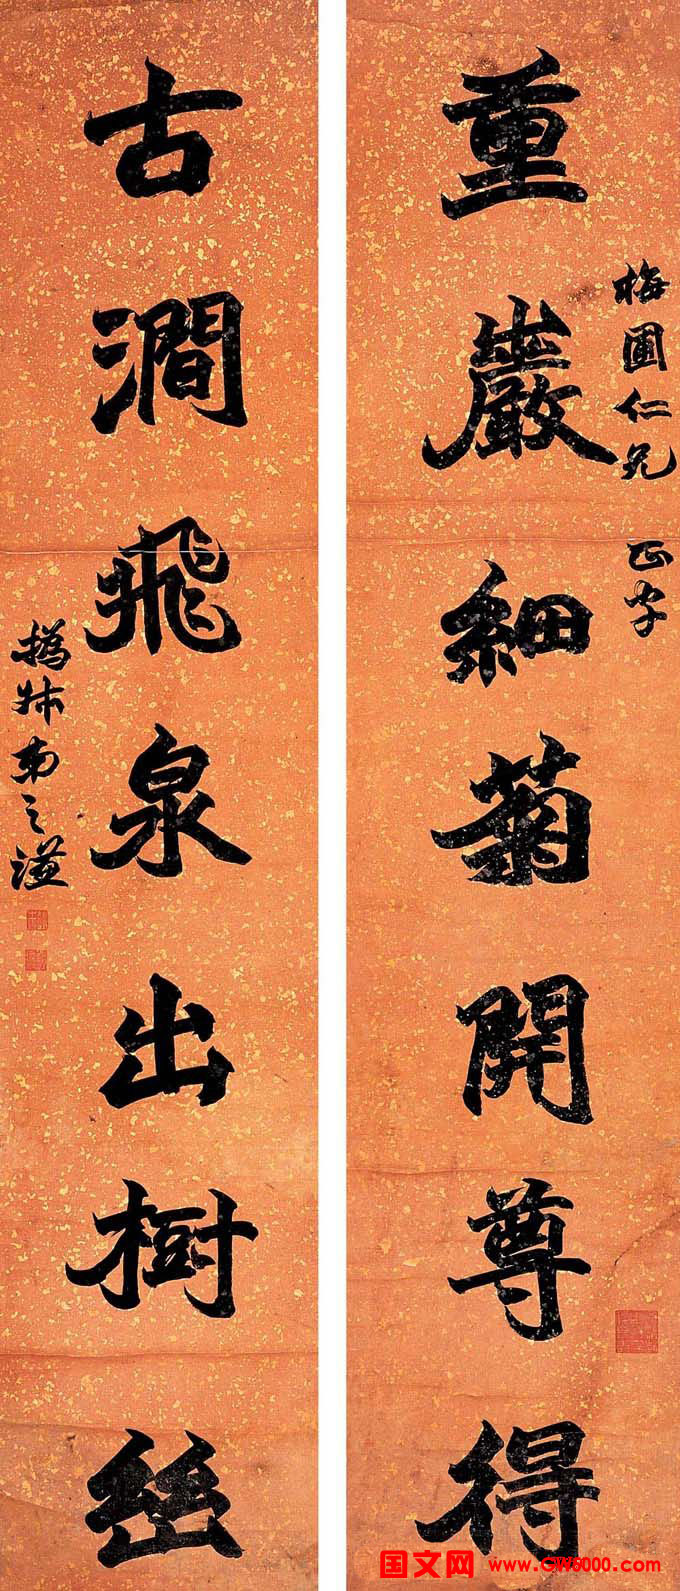 重巖細菊開尊得
梅圃仁兄 正字
古澗飛泉出樹幽
撝叔弟之謙
国文网 www.GW5000.com